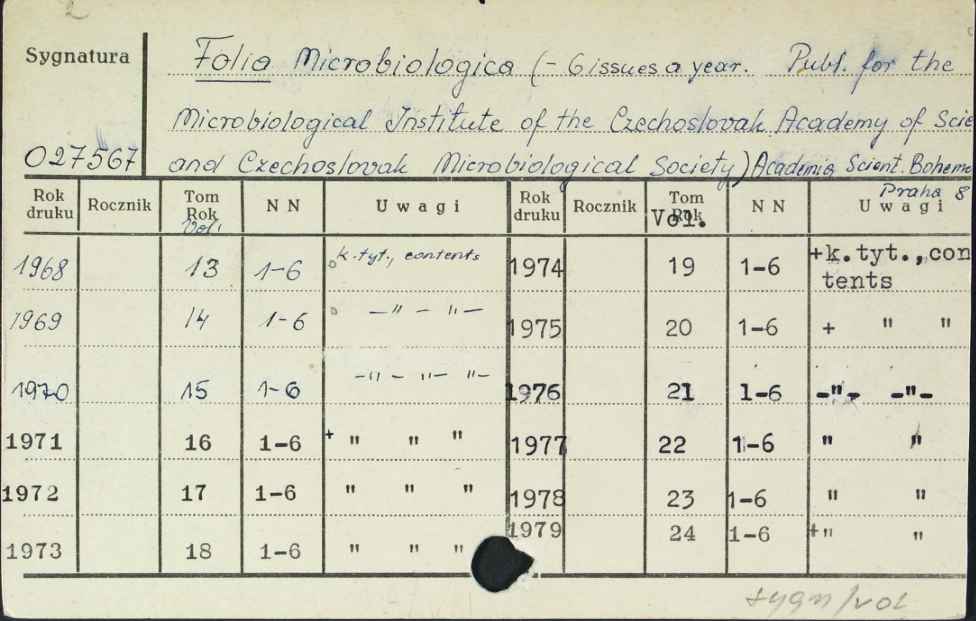 2
Sygnatura
Folia Microbiologica (- 6 issues a year. Publ. for the
Microbiological Institute of the Czechoslovak Academy of Scie
027567 and Czechoslovak Microbiological Society) Academia Scient. Bohemo
Praha 8
Rok druku Rocznik Tom Rok Vol. N N Uwagi Rok druku Rocznik Tom Rok Vol. N N Uwagi
1968 13 1-6 k.tyt., contents 1974 19 1-6 +k.tyt.,con
tents
1969 14 1-6 —"— "— 1975 20 1-6 + " "
1970 15 1-6 —"— "— "— 1976 21 1-6 -"- -"-
1971 16 1-6 + " " " 1977 22 1-6 " "
1972 17 1-6 " " " 1978 23 1-6 " "
1979 24 1-6 +" "
1973 18 1-6 " " "
sygn/vol